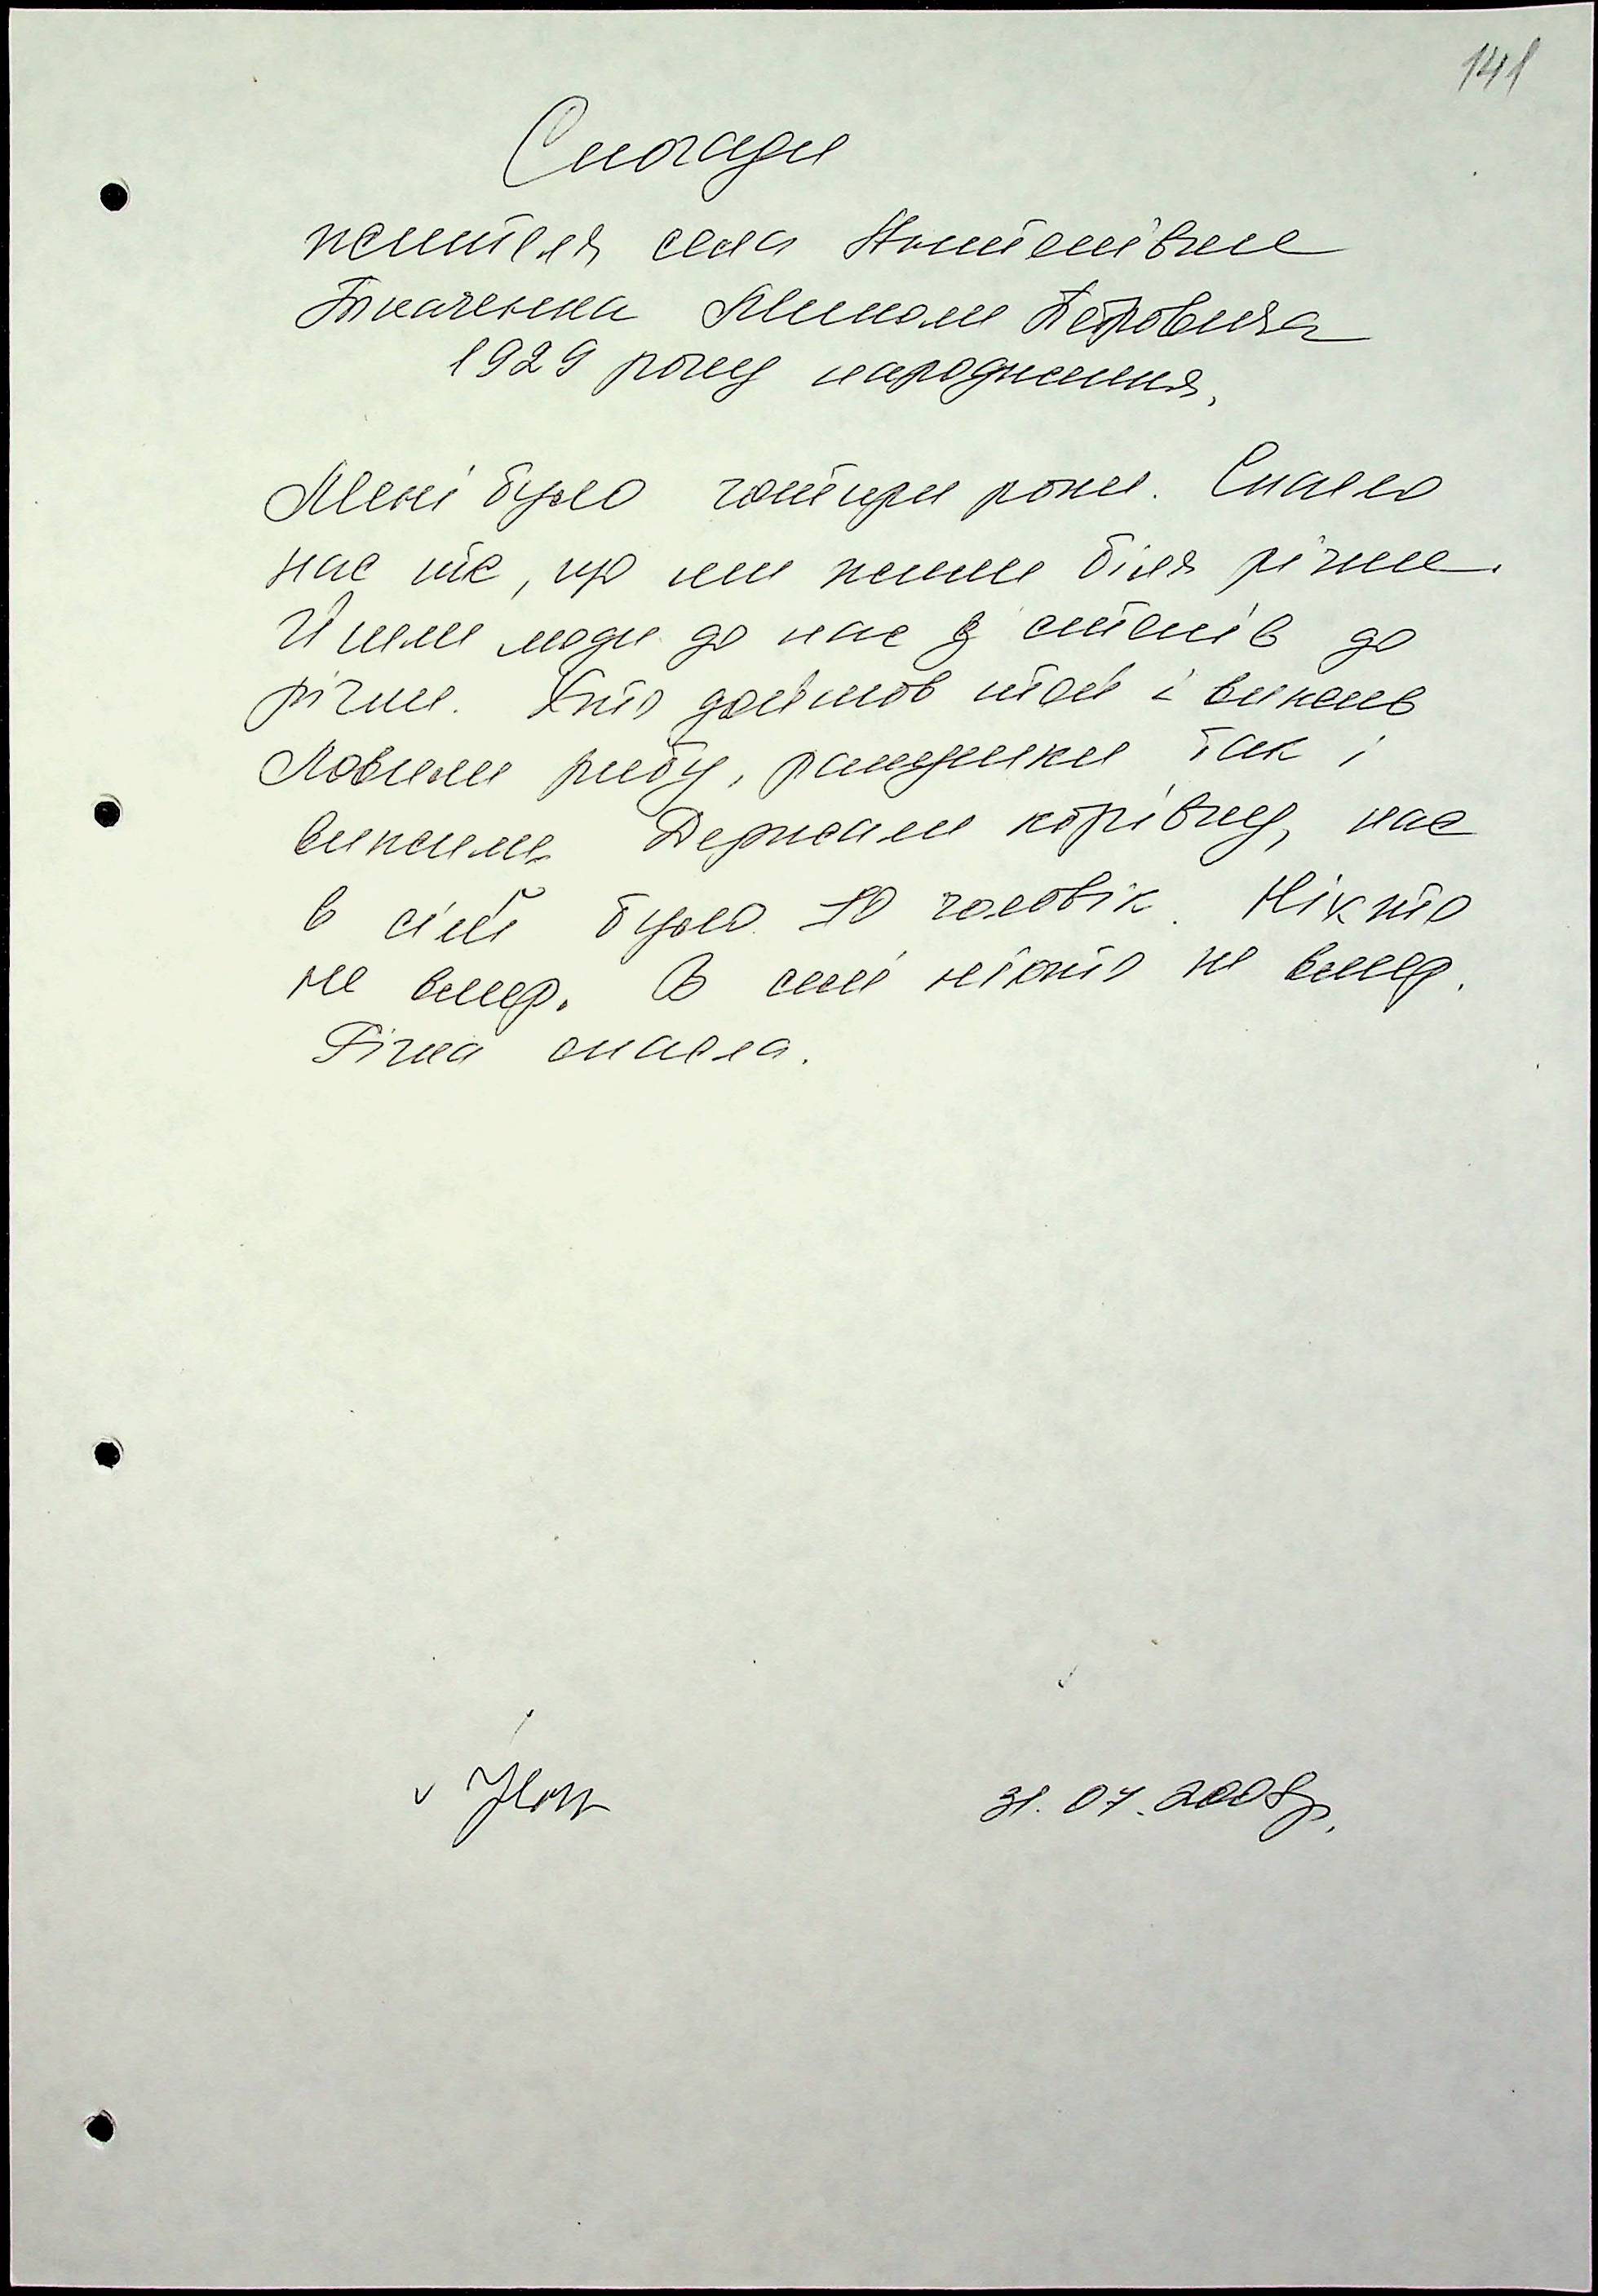 141
Спогади
жителя села
Ткаченка Миколи Петровича
1929 року народження.
Мені було чотири роки. Спасло
нас те, що ми жили біля річки.
Йшли люди до нас з степів до
річки. Хто дойшов той і вижив
Ловили рибу, ракушки так і
вижили. Держали корівку, нас
в сімї було 10 чоловік. Ніхто
не вмер. В селі ніхто не вмер.
Річка спасла.
31.07.2008р.